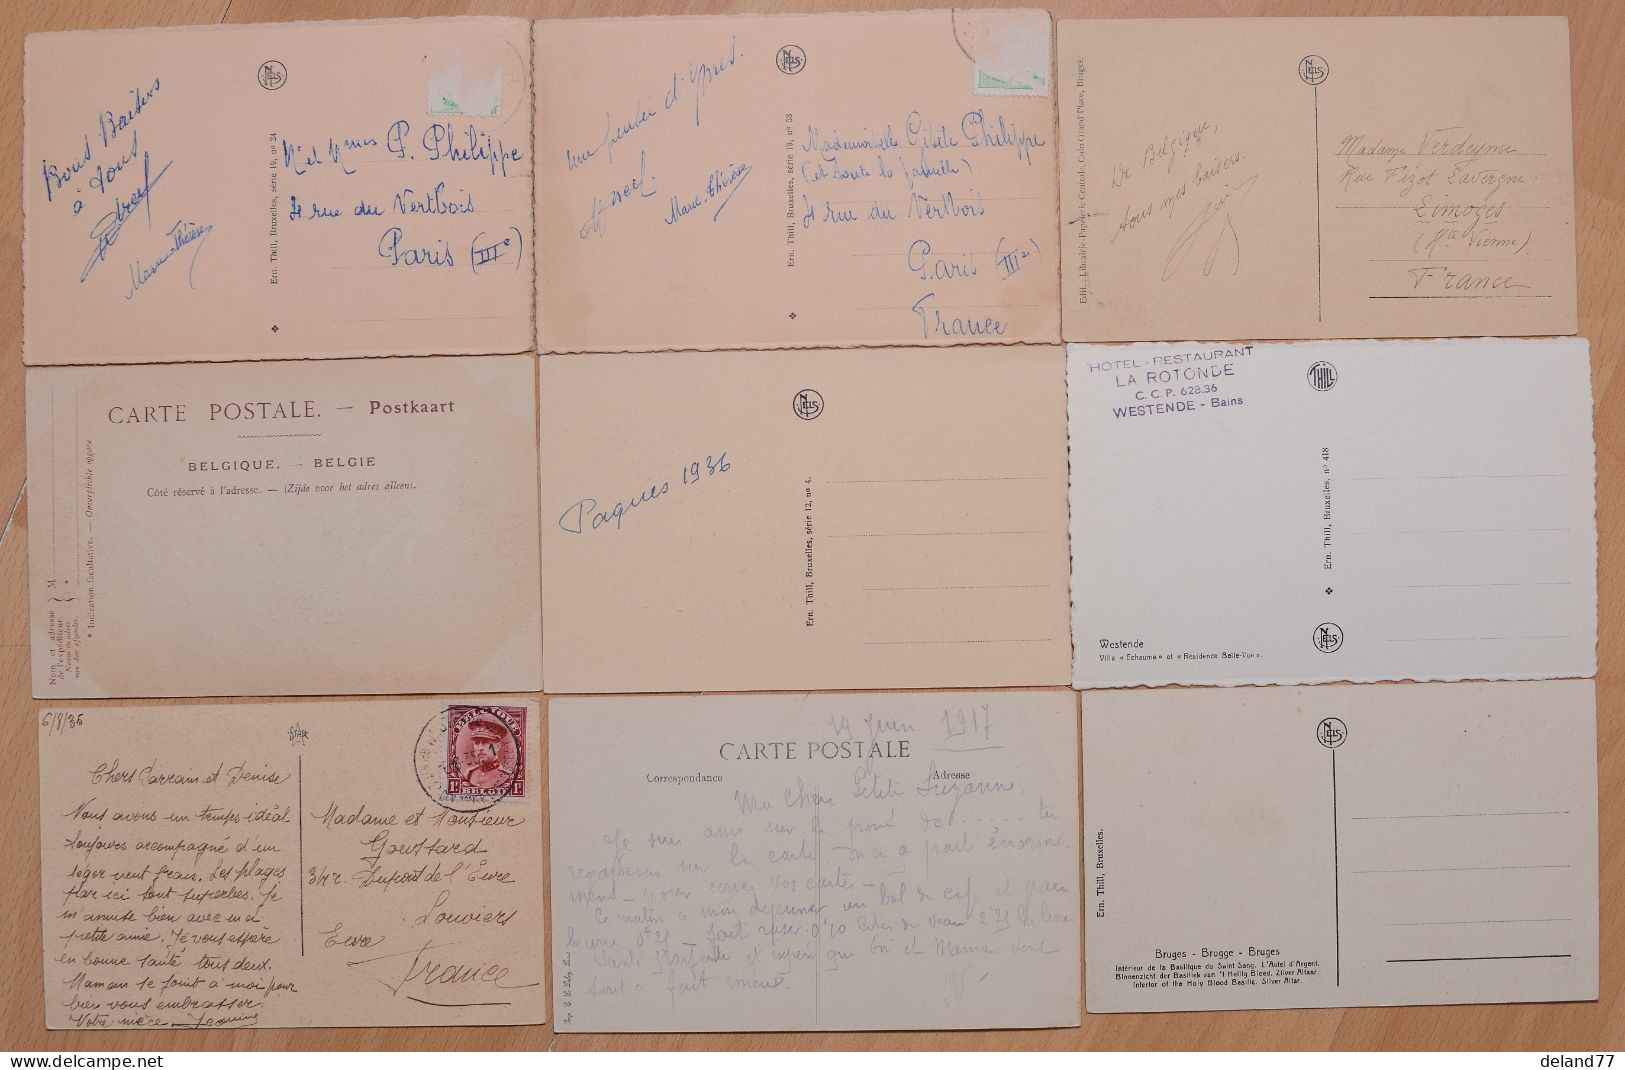 Bons Baisers
à tous
Marie-Thérèse
NELS
Ern. Thill, Bruxelles, série 19, no 24
P. Philippe
4 rue du Vertbois
Paris (IIIe)
une pensée d'Ypres.
Marie-Thérèse
NELS
Ern. Thill, Bruxelles, série 19, no 53
Mademoiselle Gisèle Philippe
(et toute la famille)
4 rue du Vertbois
Paris (IIIe)
France
Edit. : Librairie-Papeterie Centrale. Coin Grand'Place, Bruges.
NELS
De Belgique,
tous mes baisers.
Madame Verdeyme
Rue Fizot Lavergne
Limoges
(Hte Vienne)
France
CARTE POSTALE. — Postkaart
BELGIQUE. — BELGIE
Côté réservé à l'adresse. — (Zijde voor het adres alleen).
Nom et adresse
de l'expéditeur.
Naam en adres
van den afzender.
M
*
* Indication facultative. — Onverplichte opgave
NELS
Paques 1936
Ern. Thill, Bruxelles, série 12, no 4.
HOTEL-RESTAURANT
LA ROTONDE
C.C.P. 628.36
WESTENDE - Bains
THILL
Ern. Thill, Bruxelles, no 418
Westende
Villa « Echaume » et « Résidence Belle-Vue ».
NELS
6/8/35
STAR
BELGIQUE
1F BELGIE 1F
Chers Parrain et Denise
Nous avons un temps idéal
toujours accompagné d'un
léger vent frais. Les plages
par ici sont superbes. Je
m'amuse bien avec ma
petite amie. Je vous espère
en bonne santé tous deux.
Maman se joint à moi pour
bien vous embrasser.
Votre nièce Jeanine
Madame et Monsieur
Goustard
Dupont de l'Eure
Louviers
Eure
France
19 Juin 1917
CARTE POSTALE
Correspondance
Adresse
Ma Chère Petite Suzanne,
Je suis assis sur le pont de ..... tu
regarderas sur la carte - on en a parlé énormé-
ment - pour écrire vos cartes -
Ce matin à mon déjeuner un bol de café et pain
beurre 0f25
Santé parfaite et espère que toi et Maman vont
tout à fait mieux.
NELS
Ern. Thill, Bruxelles.
Bruges - Brugge - Bruges
Intérieur de la Basilique du Saint Sang. L'Autel d'Argent.
Binnenzicht der Basiliek van 't Heilig Bloed. Zilver Altaar.
Interior of the Holy Blood Basilic. Silver Altar.
Delcampe.net
deland77